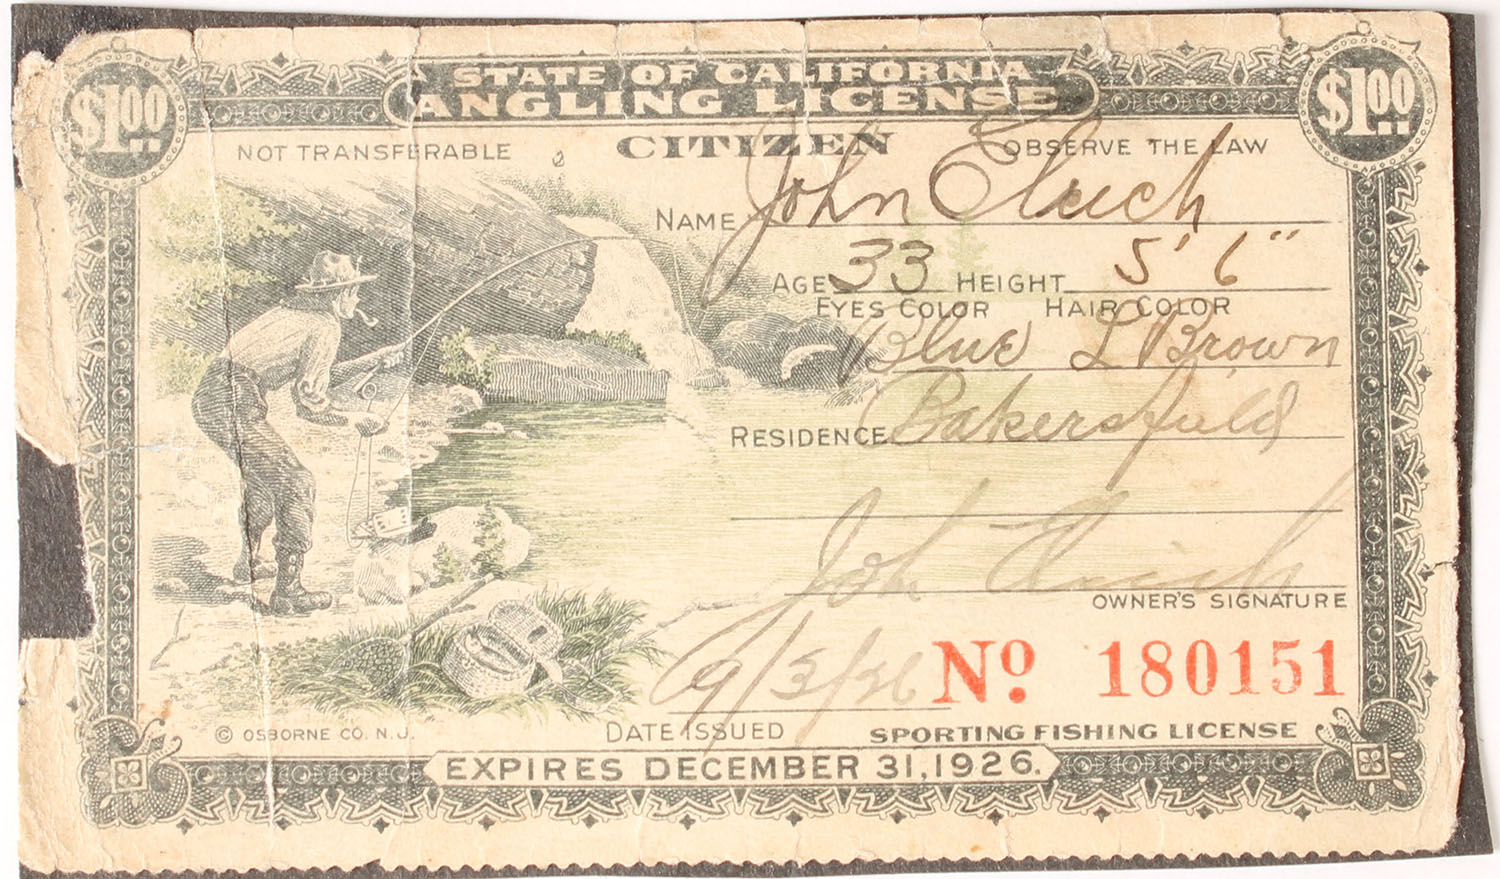 $1.00 STATE OF CALIFORNIA $1.00
ANGLING LICENSE
NOT TRANSFERABLE CITIZEN OBSERVE THE LAW
NAME John
AGE 33 HEIGHT 5' 6"
EYES COLOR HAIR COLOR
Blue L Brown
RESIDENCE Bakersfield
John
OWNER'S SIGNATURE
9/5/26 No. 180151
© OSBORNE CO. N.J. DATE ISSUED SPORTING FISHING LICENSE
EXPIRES DECEMBER 31, 1926.